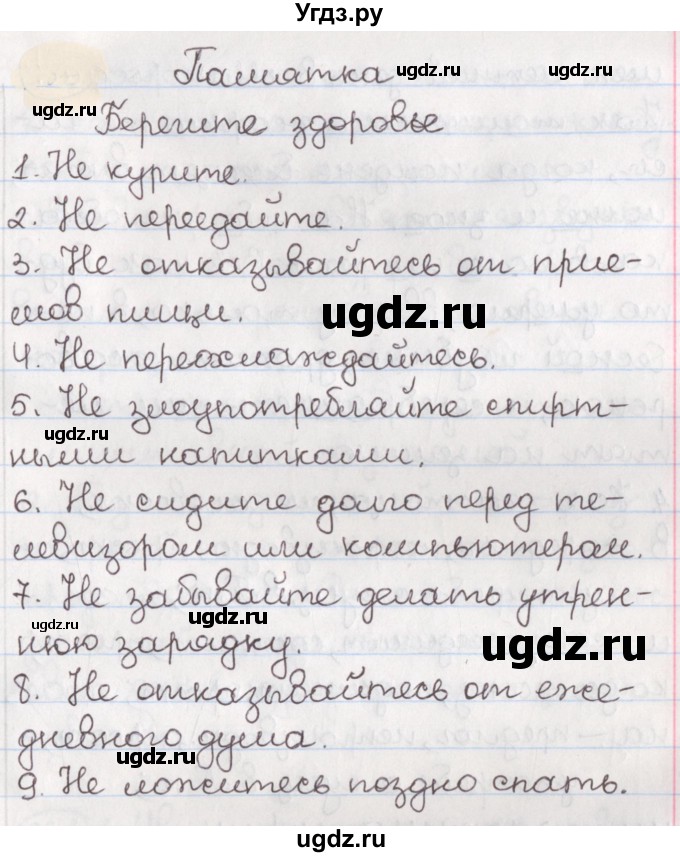 Угдз.ру
Памятка
Берегите здоровье
1. Не курите.
2. Не переедайте.
3. Не отказывайтесь от прие-
мов пищи.
4. Не переохлаждайтесь.
5. Не злоупотребляйте спирт-
ными напитками.
6. Не сидите долго перед те-
левизором или компьютером.
7. Не забывайте делать утрен-
нюю зарядку.
8. Не отказывайтесь от еже-
дневного душа.
9. Не ложитесь поздно спать.
ugdz.ru
ugdz.ru
ugdz.ru
ugdz.ru
ugdz.ru
ugdz.ru
ugdz.ru
ugdz.ru
ugdz.ru
ugdz.ru